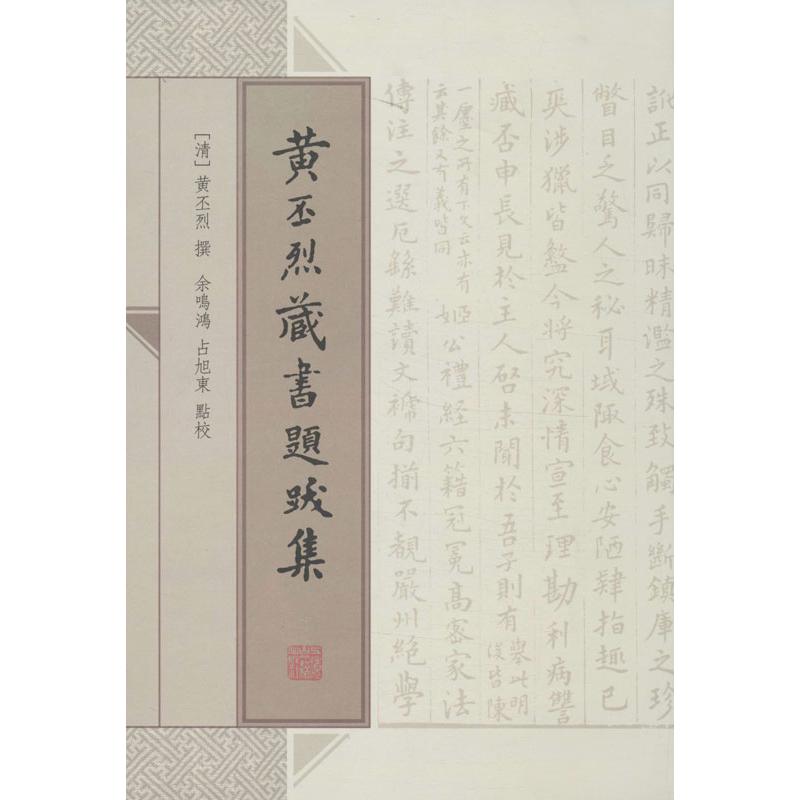 訛正以同歸昧精濫之殊致觸手斷鎮庫之珍
瞥目乏驚人之秘耳域陬食心安陋肆指趣已
爽涉獵皆盭今將究深情宣至理勘利病讐
臧否申長見於主人啓未聞於吾子則有舉此明
後皆陳
一廛之所有下云亦有
云其餘又有義皆同
姬公禮經六籍冠冕高密家法
傳注之選厄繇難讀文褫句揃不覩嚴州絕學
黃丕烈藏書題跋集
[清]黃丕烈 撰 余鳴鴻 占旭東 點校